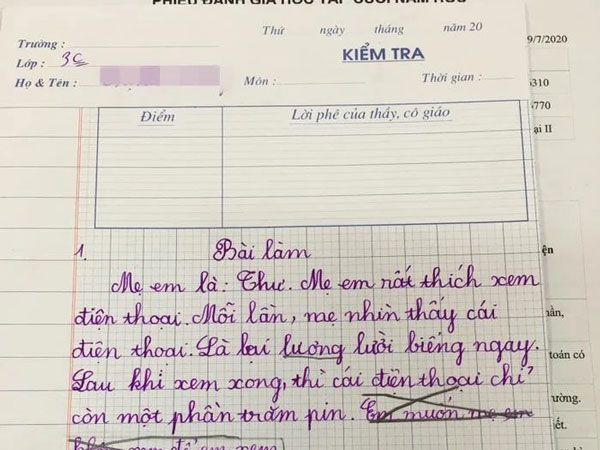 PHIẾU ĐÁNH GIÁ HỌC TẬP CUỐI NĂM HỌC
Thứ ngày tháng năm 20
Trường :
Lớp : 3C
Họ & Tên :
KIỂM TRA
Môn : Thời gian :
Điểm Lời phê của thầy, cô giáo
9/7/2020
6310
6770
ại II
1. Bài làm
Mẹ em là: Thư. Mẹ em rất thích xem
điện thoại. Mỗi lần, mẹ nhìn thấy cái
điện thoại. Là lại lương lười biếng ngay.
Sau khi xem xong, thì cái điện thoại chỉ
còn một phần trăm pin. Em muốn mẹ em
toán có
ường.
hết.